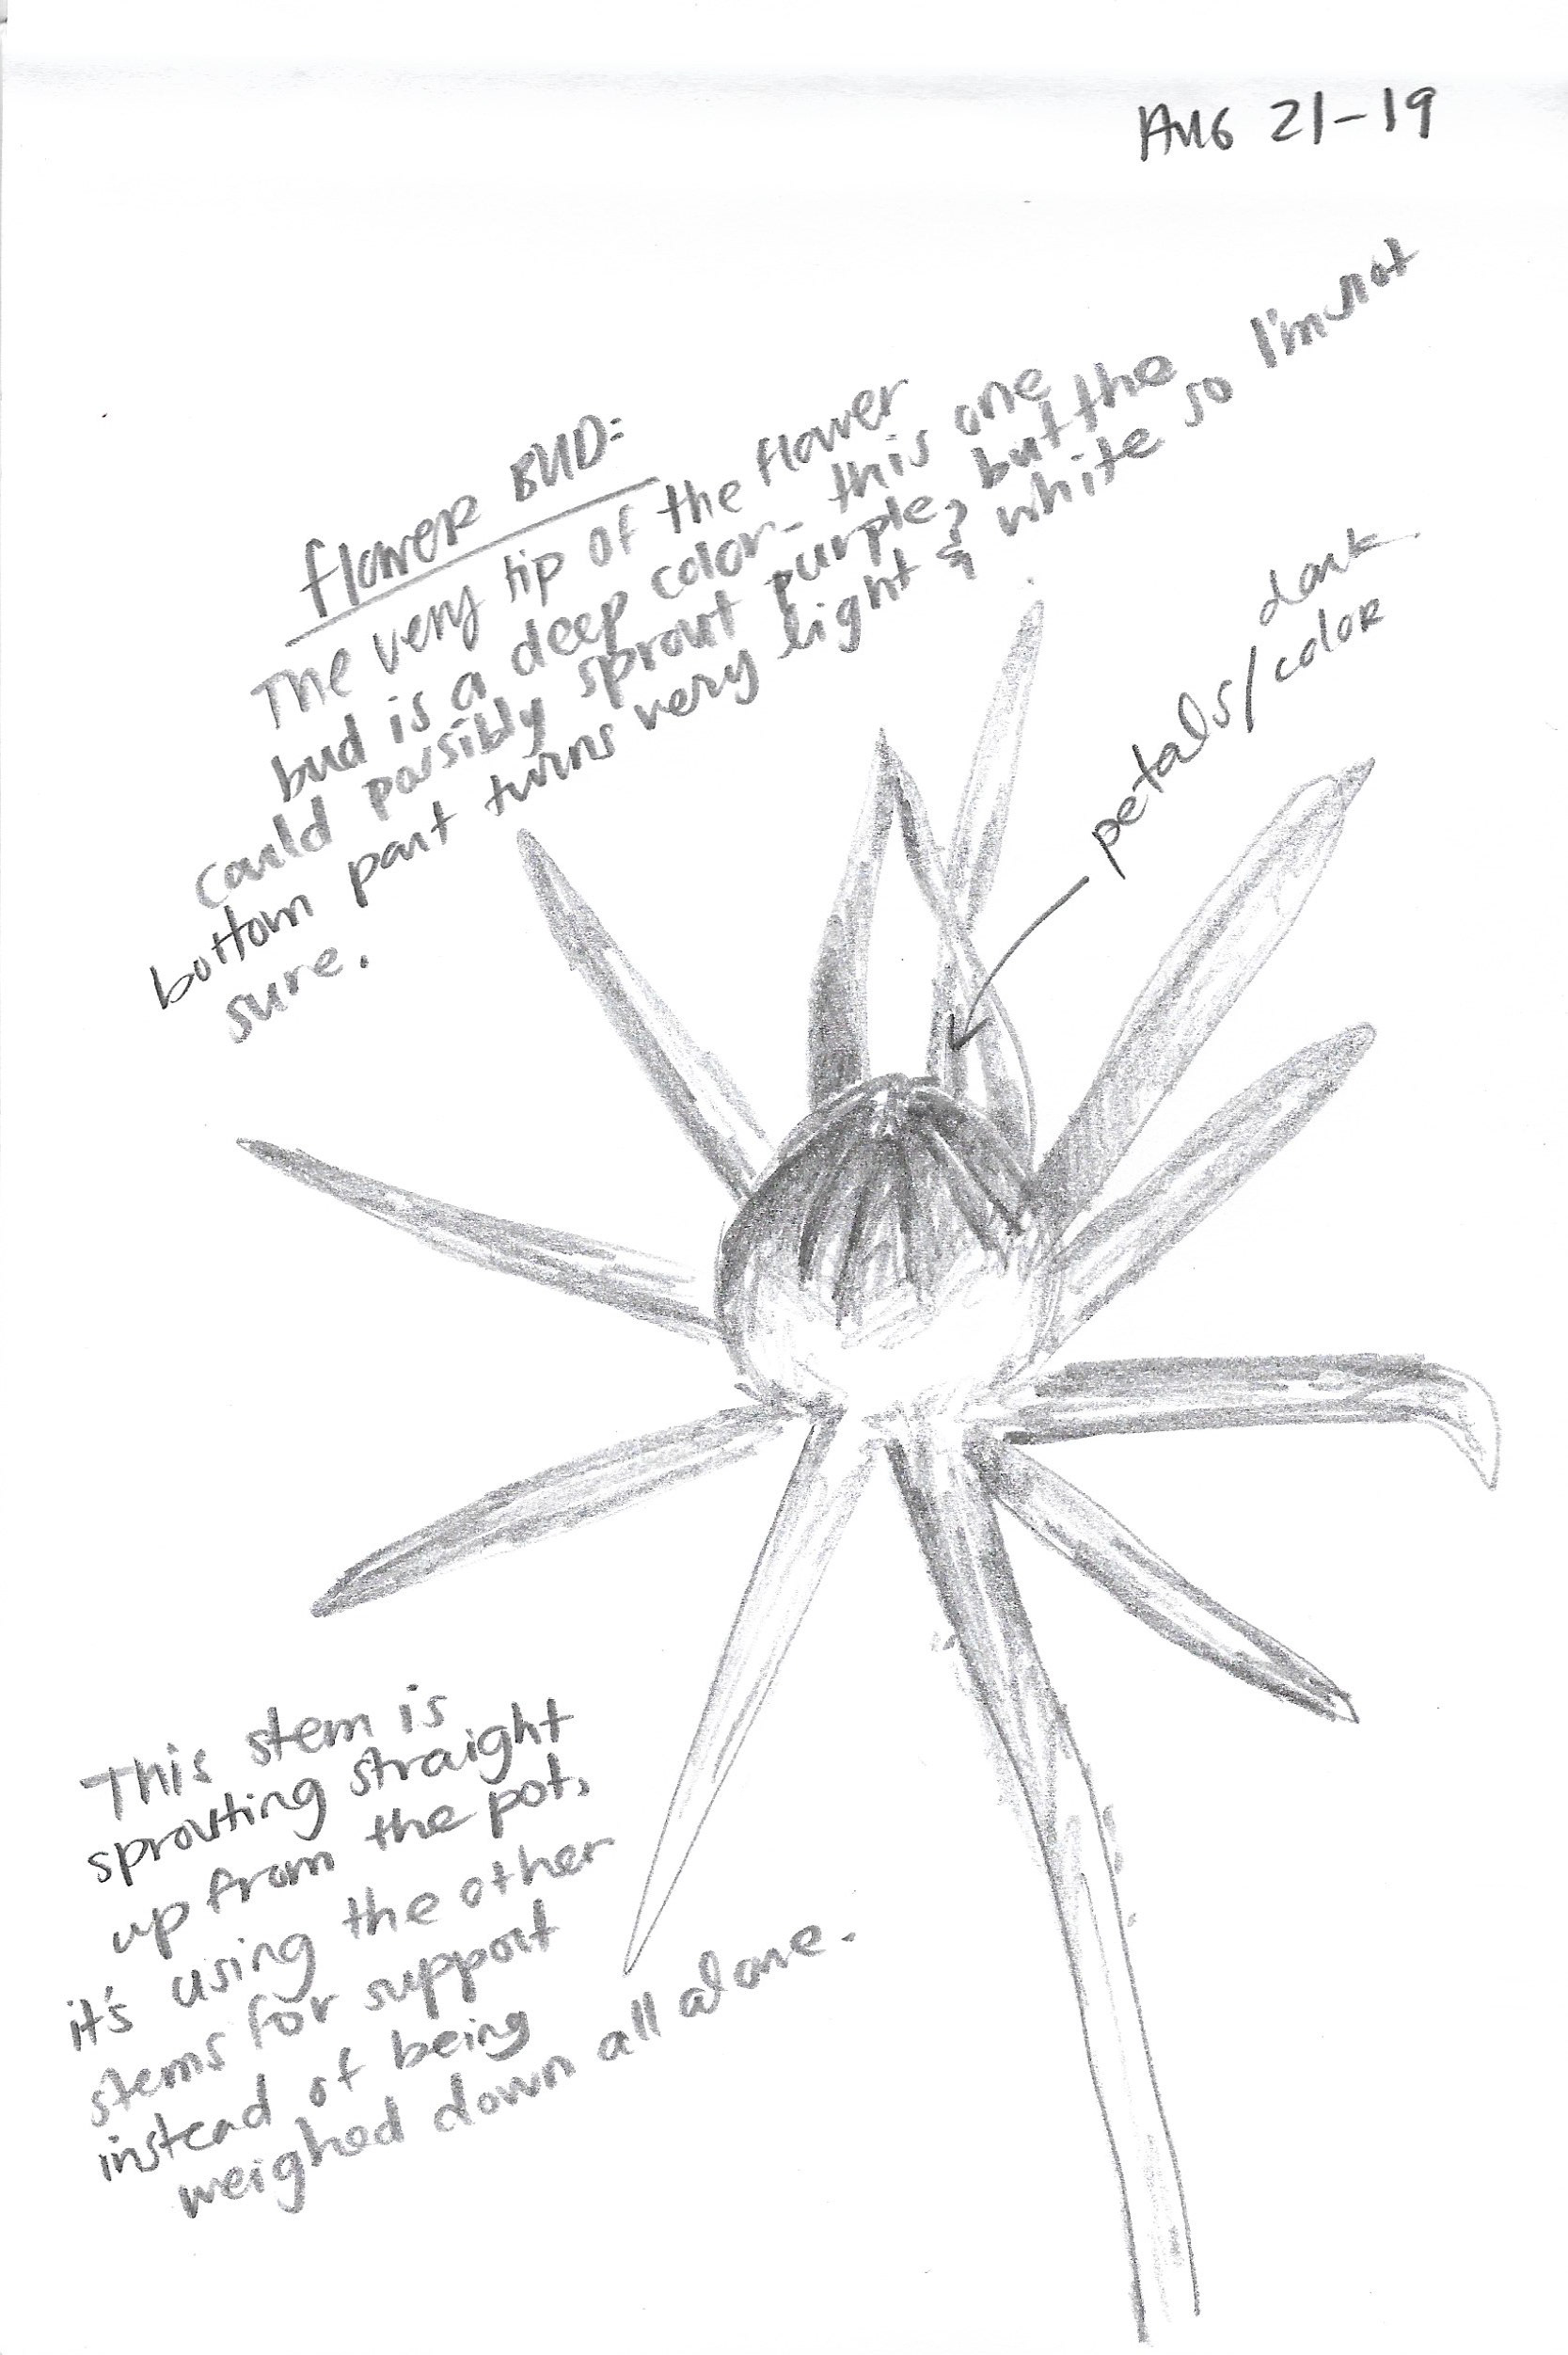 AUG 21-19
flower BUD:
The very tip of the flower
bud is a deep color- this one
could possibly sprout purple, but the
bottom part turns very light & white so I'm not
sure.
petals/dark
color
This stem is
sprouting straight
up from the pot,
it's using the other
stems for support
instead of being
weighed down all alone.